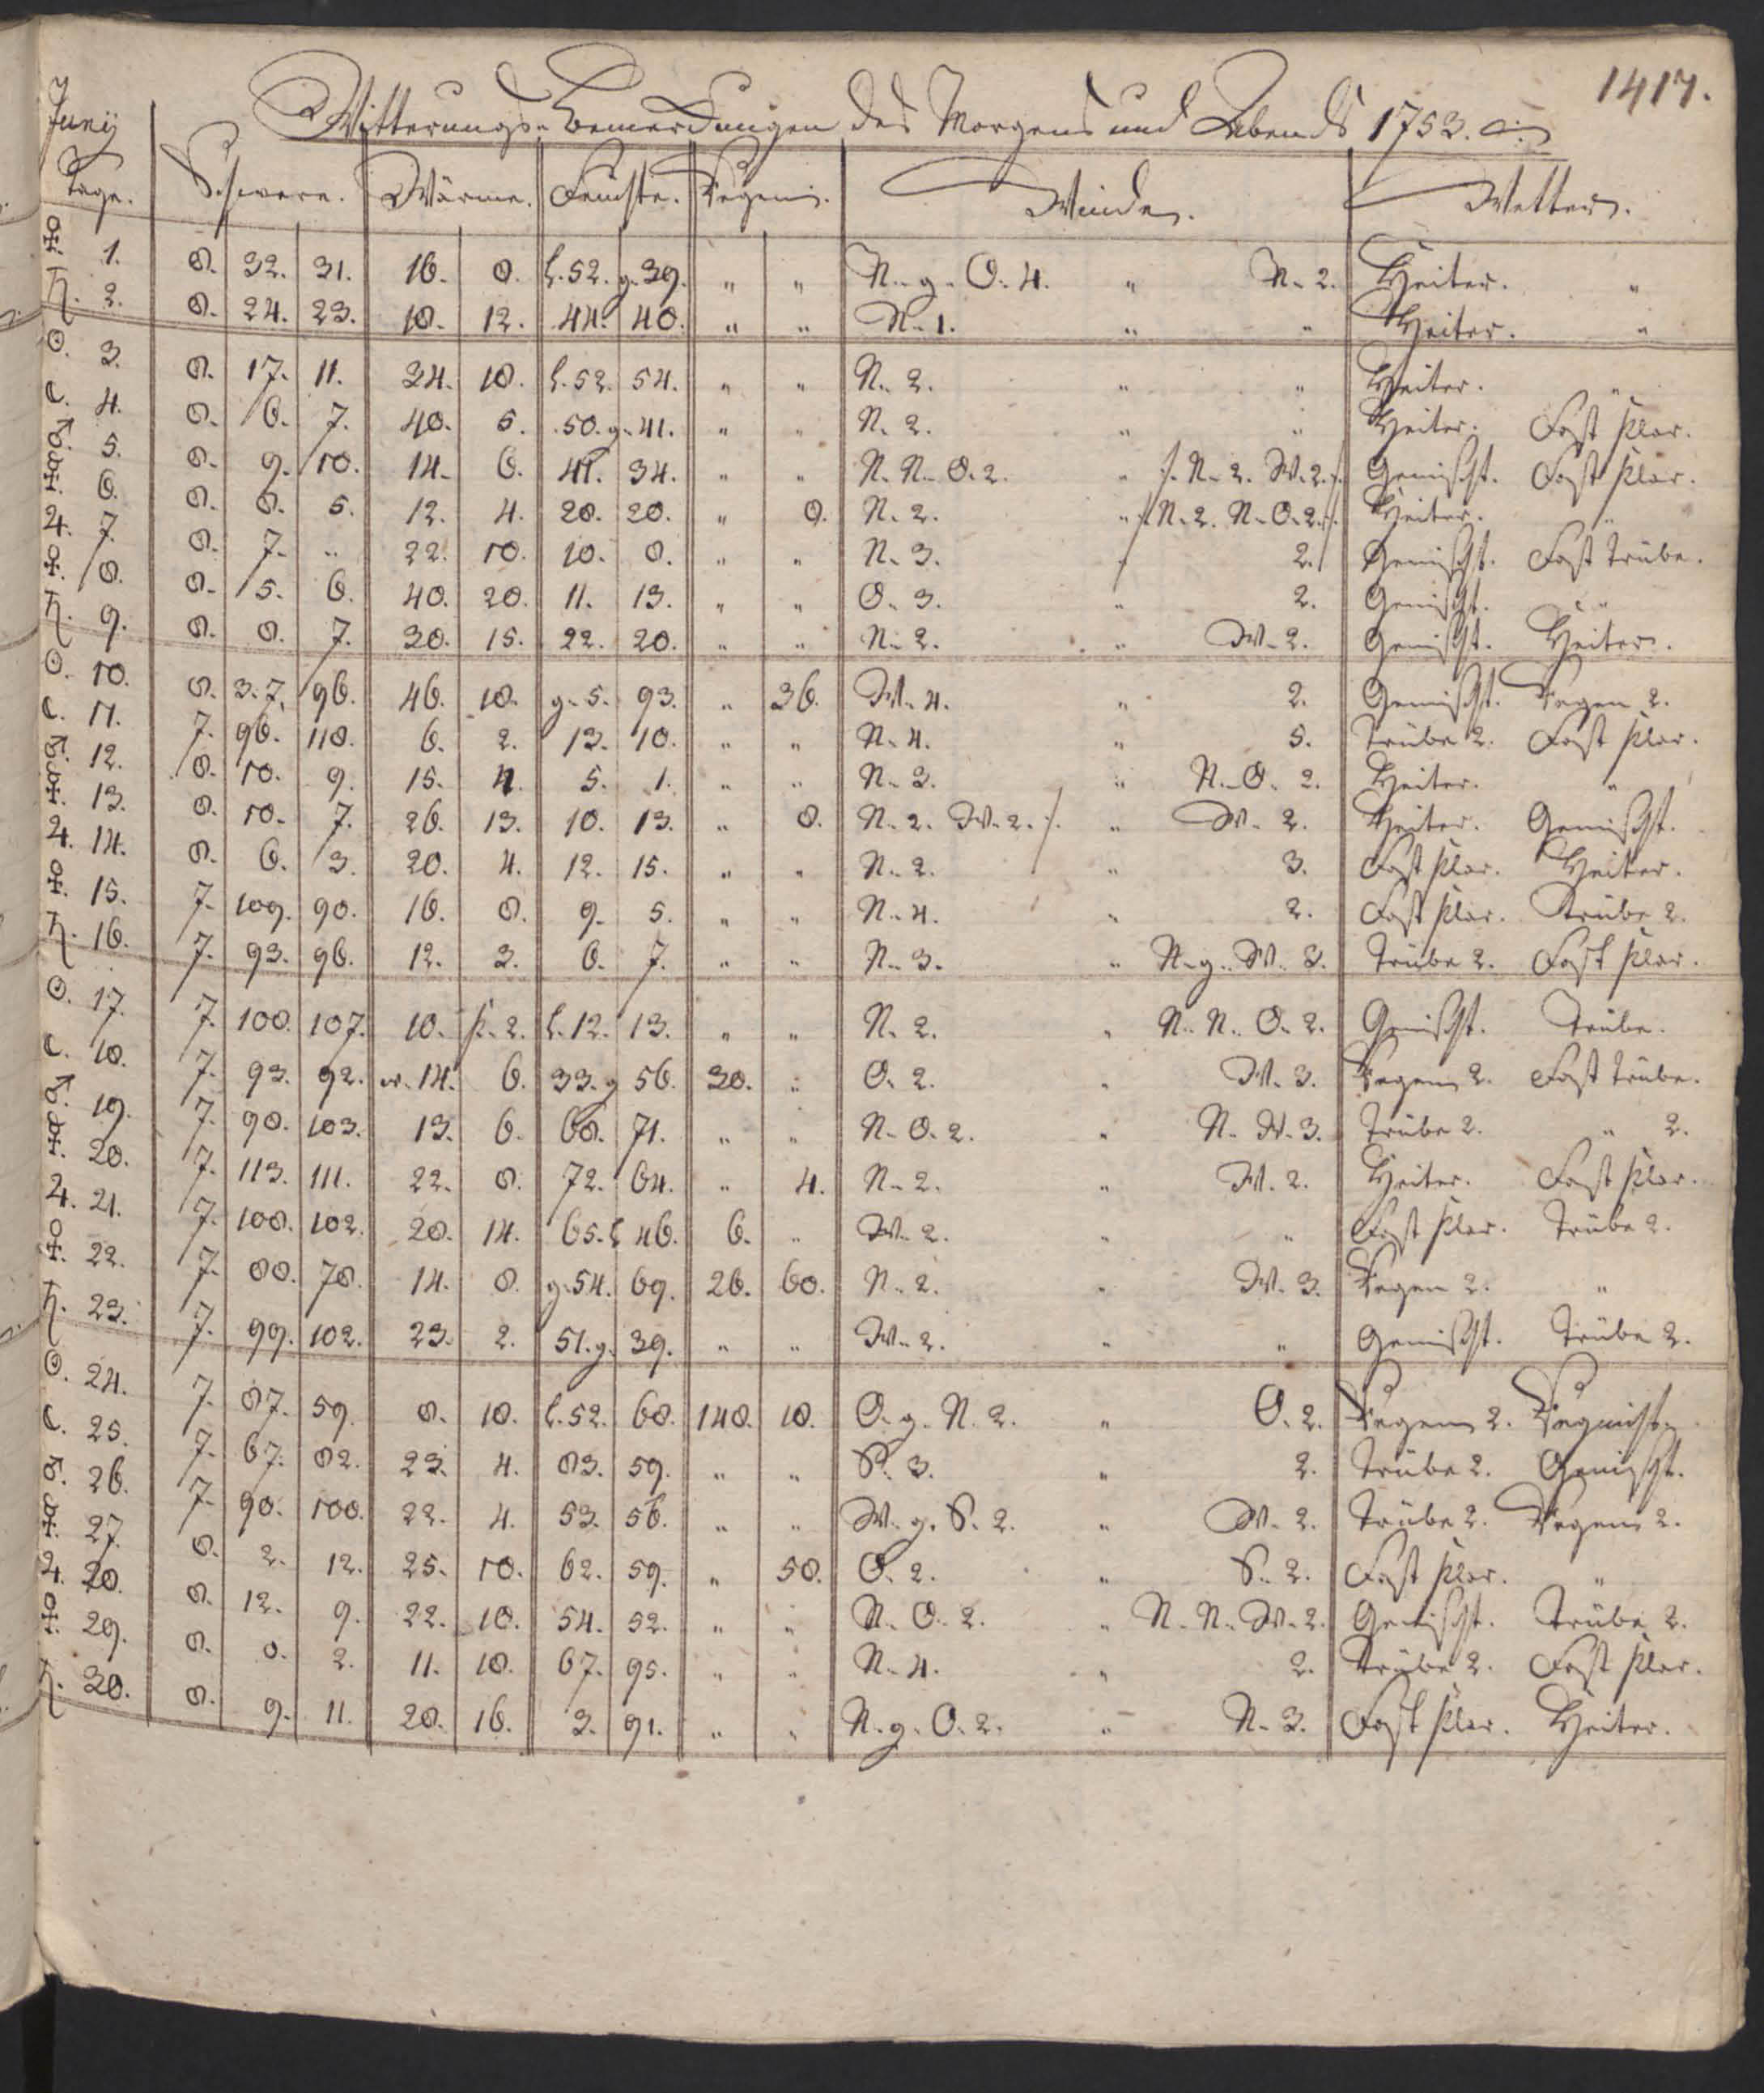 1417.
Juny Witterungs-Bemerckungen des Morgens und Abends 1753.
Tage. Schwere. Wärme. Feuchte. Regen. Winde. Wetter.
♀. 1. 8. 32. 31. 16. 8. l. 52. g. 39. " " N. g. O. 4. " N. 2. Heiter. "
♄. 2. 8. 24. 23. 18. 12. 44. 40. " " N. 1. " " Heiter. "
☉. 3. 8. 17. 11. 34. 18. l. 52. 54. " " N. 2. " " Heiter. "
☾. 4. 8. 6. 7. 40. 5. 50. g. 41. " " N. 2. " " Heiter. Fast klar.
♂. 5. 8. 9. 10. 14. 6. 41. 34. " " N. N. O. 2. " /. N. 2. W. 2. /. Gemischt. Fast klar.
☿. 6. 8. 8. 5. 12. 4. 28. 20. " 8. N. 2. " /. N. 2. N. O. 2. /. Heiter. "
♃. 7. 8. 7. " 22. 10. 10. 8. " " N. 3. " 2. Gemischt. Fast trübe.
♀. 8. 8. 5. 6. 40. 20. 11. 13. " " O. 3. " 2. Gemischt. "
♄. 9. 8. 8. 7. 30. 15. 22. 20. " " N. 2. " W. 2. Gemischt. Heiter.
☉. 10. 8. 3. 7. 96. 46. 18. g. 5. 93. " 36. W. 4. " 2. Gemischt. Regen 2.
☾. 11. 7. 96. 118. 6. 2. 13. 10. " " N. 4. " 5. Trübe 2. Fast klar.
♂. 12. 8. 10. 9. 15. 4. 5. 1. " " N. 3. " N. O. 2. Heiter. "
☿. 13. 8. 10. 7. 26. 13. 10. 13. " 8. N. 2. W. 2. /. " W. 2. Heiter. Gemischt.
♃. 14. 8. 6. 3. 20. 4. 12. 15. " " N. 2. " 3. Fast klar. Heiter.
♀. 15. 7. 109. 90. 16. 8. 9. 5. " " N. 4. " 2. Fast klar. Trübe 2.
♄. 16. 7. 93. 96. 12. 3. 6. 7. " " N. 3. " N. g. W. 3. Trübe 2. Fast klar.
☉. 17. 7. 108. 107. 10. k. 2. l. 12. 13. " " N. 2. " N. N. O. 2. Gemischt. Trübe.
☾. 18. 7. 93. 92. w. 14. 6. 33. g 56. 30. " O. 2. " W. 3. Regen 2. Fast trübe.
♂. 19. 7. 98. 103. 13. 6. 68. 71. " " N. O. 2. " N. W. 3. Trübe 2. " 2.
☿. 20. 7. 113. 111. 22. 8. 72. 64. " 4. N. 2. " W. 2. Heiter. Fast klar.
♃. 21. 7. 108. 102. 28. 14. 65. l 46. 6. " W. 2. " " Fast klar. Trübe 2.
♀. 22. 7. 88. 78. 14. 8. g. 54. 69. 26. 60. N. 2. " W. 3. Regen 2. "
♄. 23. 7. 99. 102. 23. 2. 51. g. 39. " " W. 2. " " Gemischt. Trübe 2.
☉. 24. 7. 87. 59. 8. 10. l. 52. 68. 148. 18. O. g. N. 2. " O. 2. Regen 2.
☾. 25. 7. 67. 82. 23. 4. 83. 59. " " S. 3. " 2. Trübe 2. Gemischt.
♂. 26. 7. 90. 100. 22. 4. 53. 56. " " W. g. S. 2. " W. 2. Trübe 2. Regen 2.
☿. 27. 8. 2. 12. 25. 10. 62. 59. " 58. O. 2. " S. 2. Fast klar. "
♃. 28. 8. 12. 9. 22. 10. 54. 52. " " N. O. 2. " N. N. W. 2. Gemischt. Trübe 2.
♀. 29. 8. 0. 2. 11. 10. 67. 95. " " N. 4. " 2. Trübe 2. Fast klar.
♄. 30. 8. 9. 11. 28. 16. 3. 91. " " N. g. O. 2. " N. 3. Fast klar. Heiter.